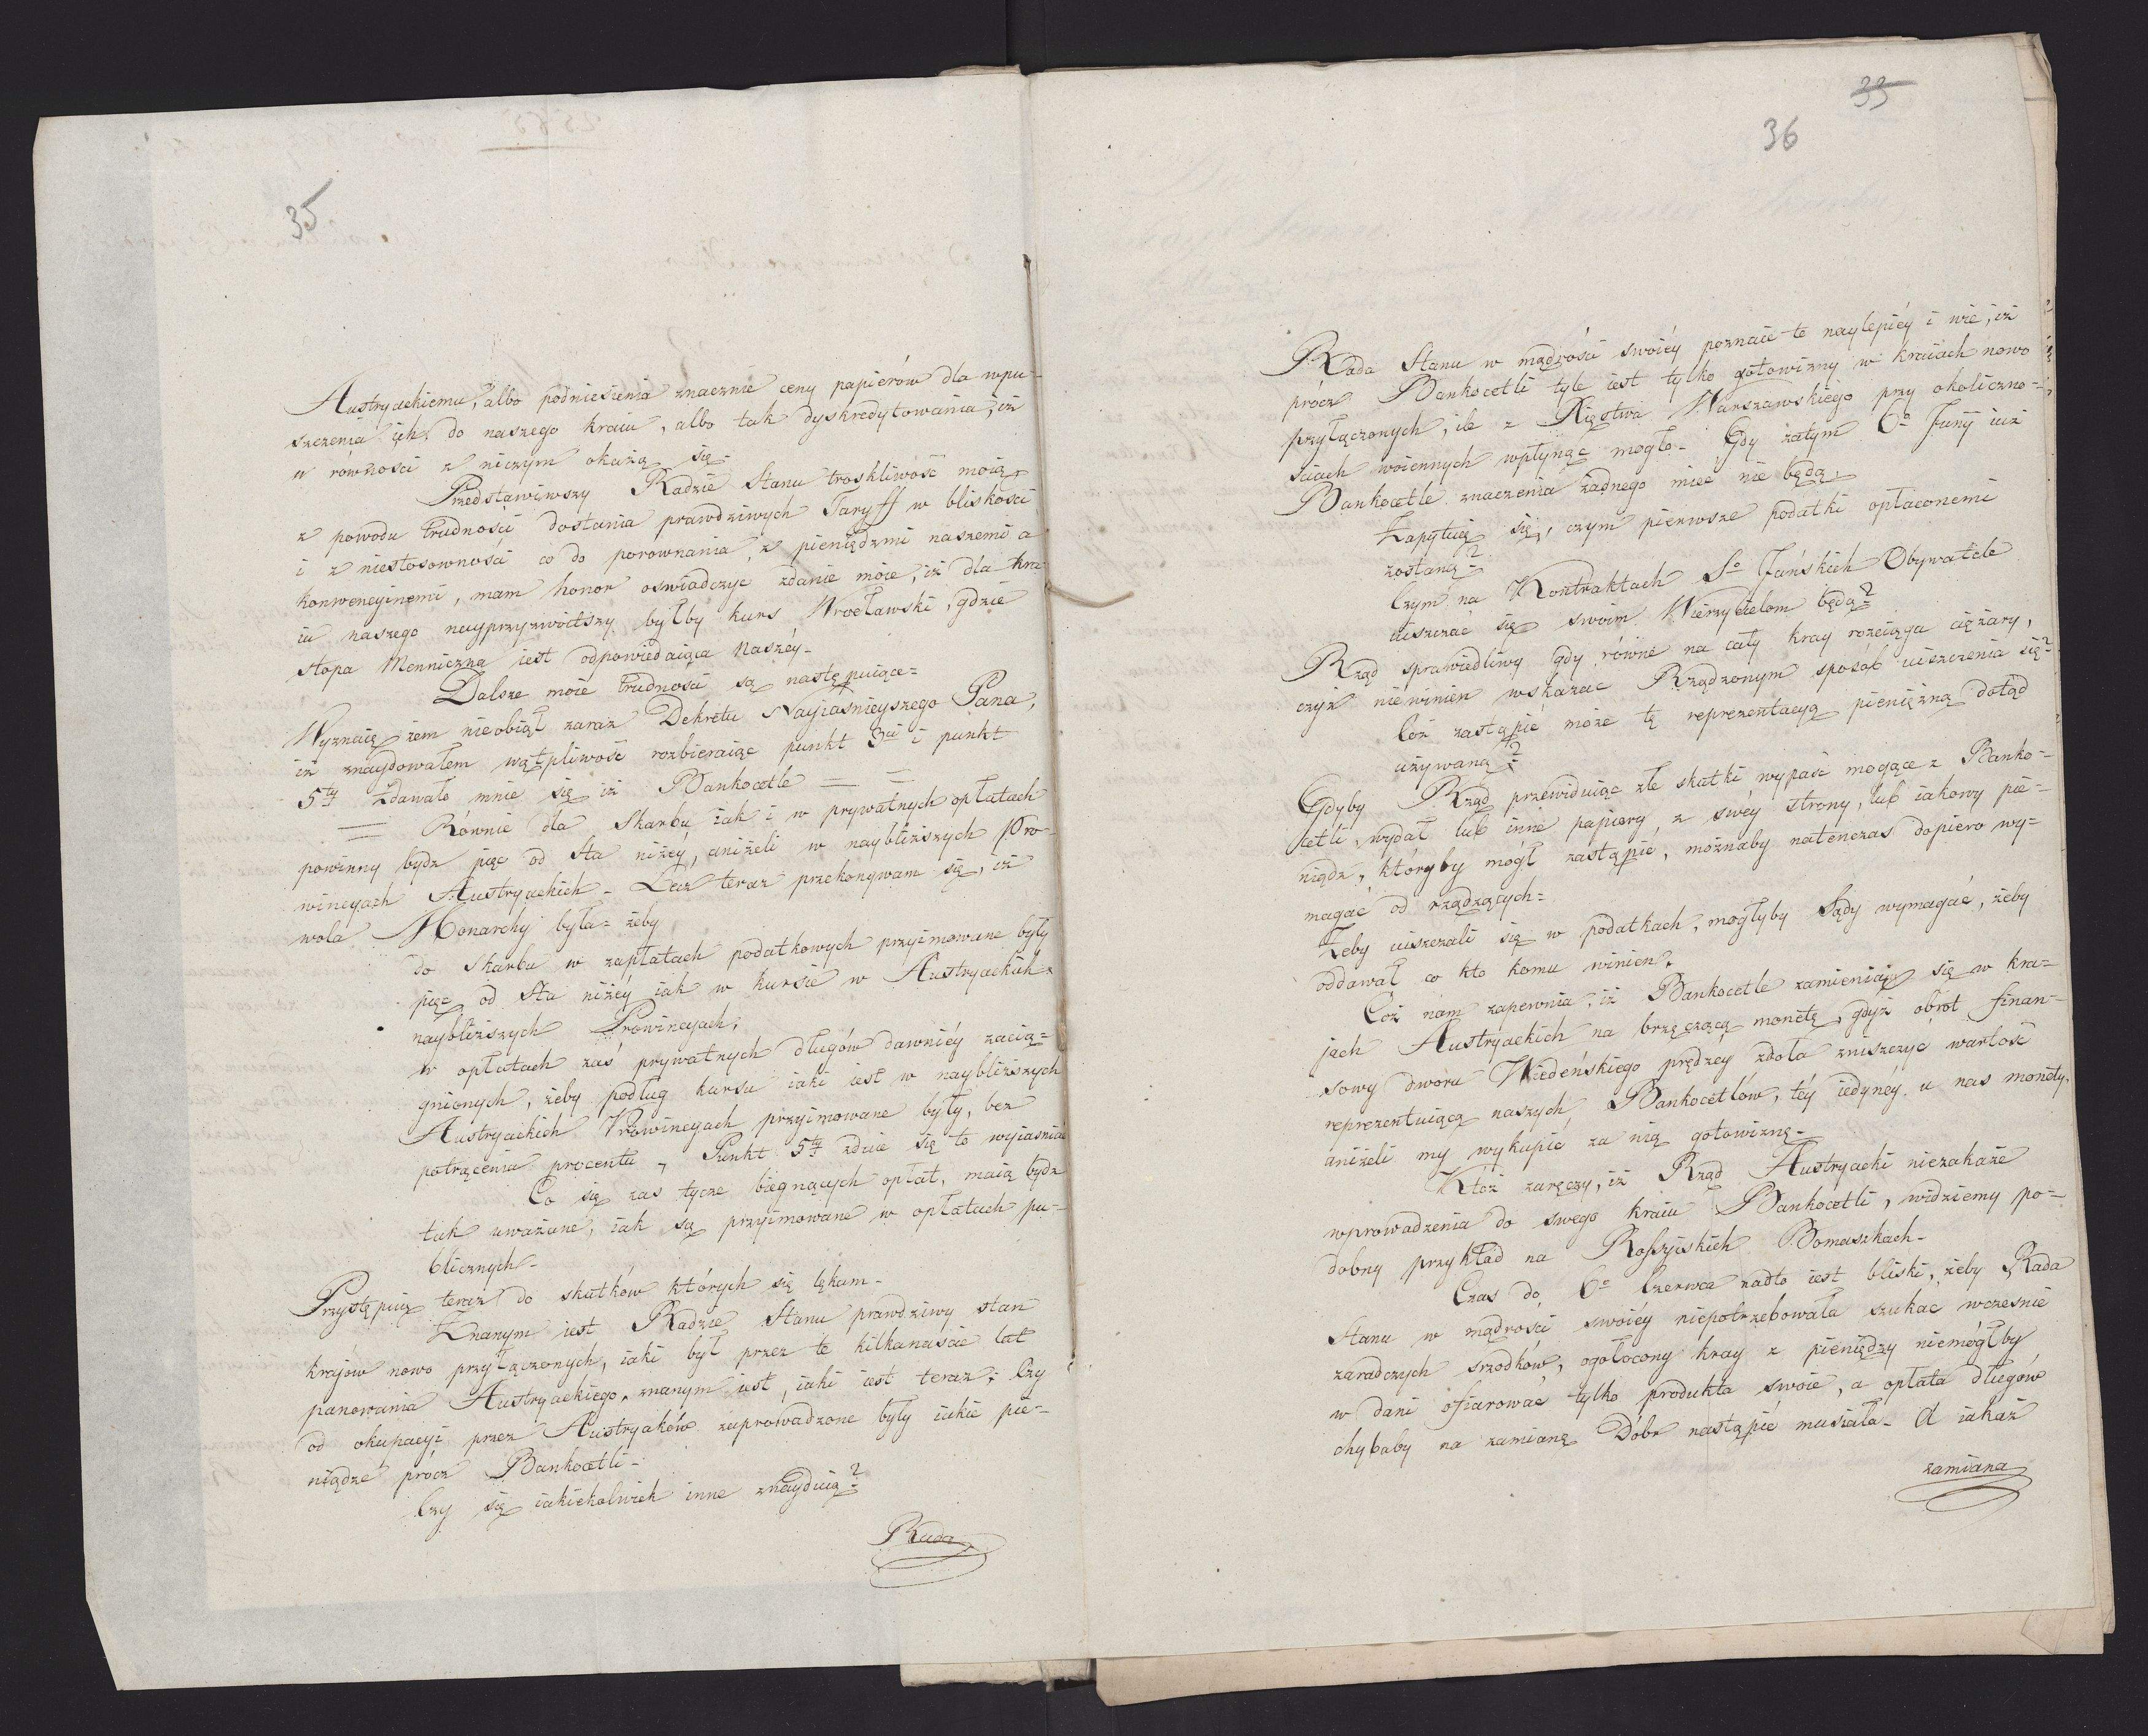 35
Austryackiemu, albo podniesienia znacznie ceny papierów dla wpu-
szczenia ich do naszego kraiu, albo tak dyskredytowania, iż
w równosci z niczym okażą się.
Przedstawiwszy Radzie Stanu troskliwość moią
z powodu trudności dostania prawdziwych Taryff w bliskości
i z niestosowności co do porownania z pieniędzmi naszemi a
konwencyinemi, mam honor oswiadczyć zdanie moie, iż dla kra
iu naszego nayprzyzwoitszy byłby kurs Wrocławski, gdzie
stopa Menniczna iest odpowiedaiąca Naszéy.
Dalsze moie trudności są następuiące=
Wyznaię żem nieobiął zaraz Dekretu Nayiaśnieyszego Pana,
iż znaydowałem wątpliwość rozbieraiąc punkt 3ci i punkt
5ty Zdawało mnie się iż Bankocetle = =
= Równie dla Skarbu iak i w prywatnych opłatach
powinny bydz pięc od sta niżéy, aniżeli w naybliższych Pro-
wincyach Austryackich - Lecz teraz przekonywam się, iż
wola Monarchy była- żeby
do Skarbu w zapłatach podatkowych przyimowane były
pięc od sta niżéy iak w kursie w Austryackich
naybliższych Prowincyach;
w opłatach zaś prywatnych długów dawniéy zacią=
gnionych, żeby podług kursu iaki iest w naybliższych
Austryackich Prowincyach przyimowane były, bez
potrącenia procentu, Punkt 5ty zdaie się to wyiaśniać
Co się zas tycze biegnących opłat, maią bydz
tak uważane, iak są przyimowane w opłatach pu-
blicznych-
Przystępuię teraz do skutków których się lękam-
Znanym iest Radzie Stanu prawdziwy stan
krajów nowo przyłączonych, iaki był przez te kilkanaście lat
panowania Austryackiego, znanym iest, iaki iest teraz; Czy
od okupacyi przez Austryaków zaprowadzone były iakie pie-
niądze prócz Bankocetli-
Czy się iakiekolwiek inne znayduią?
Rada
33
36
Rada Stanu w mądrości swoiéy poznaie to naylepiéy i wie, iż
prócz Bankocetli tyle iest tylko gotowizny w kraiach nowo
przyłączonych, ile z Xięstwa Warszawskiego przy okoliczno-
ściach woiennych wpłynąć mogło- Gdy zatym 6o Junij iuż
Bankocetle znaczenia żadnego mieć nie będą,
Zapytuię się, czym pierwsze podatki opłaconemi
zostaną?
Czym na Kontraktach So Jańskich Obywatele
uiszczać się swoim Wierzycielom będą?
Rząd sprawiedliwy gdy równe na cały kray rozciąga ciężary,
czyż niewinien wskazać Rządzonym sposób uiszczenia się?
Coż zastąpić może tę reprezentacyą pieniężną dotąd
używaną?
Gdyby Rząd przewiduiąc złe skutki wypaść mogące z Banko-
cetli, wydał lub inne papiery z swéy strony, lub iakowy pie-
niądz, któryby mógł zastąpić, możnaby natenczas dopiero wy-
magać od rządzących=
Żeby uiszczali się w podatkach, mogłyby Sądy wymagać, żeby
oddawał co kto komu winien.
Coż nam zapewnia, iż Bankocetle zamienią się w kra-
jach Austryackich na brzęczącą monetę, gdyż obrot finan-
sowy dworu Wiedeńskiego prędzey zdoła zniszczyć wartość
reprezentuiącą naszych Bankocetlów, téy iedynéy u nas monéty,
aniżeli my wykupić za nią gotowiznę-
Ktoż zaręczy, iż Rząd Austryacki niezakaże
wprowadzenia do swego kraiu Bankocetli, widziemy po-
dobny przykład na Rossyiskich Bomaszkach-
Czas do 6o Czerwca nadto iest bliski, żeby Rada
Stanu w mądrości swoiéy niepotrzebowała szukać wczesnie
zaradczych srzodków, ogołocony kray z pieniędzy niemógłby
w dani ofiarować tylko produkta swoie, a opłata długów
chybaby na zamianę Dóbr nastąpić musiała- A iakaż
zamiana